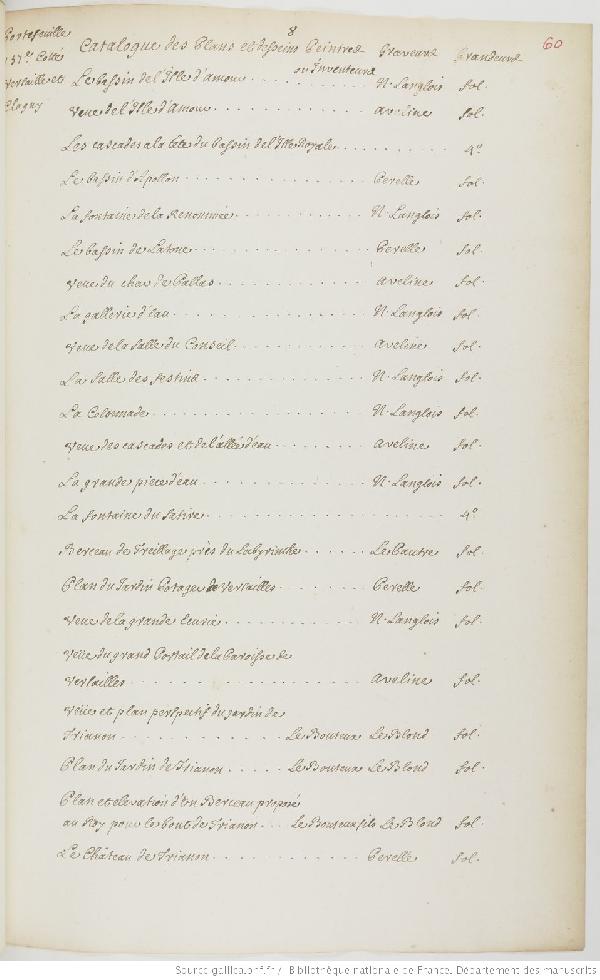 8
60
Portefeuille
157e. Cotté
Versaille et
Clagny
Catalogue des Plans et desseins Peintres Graveurs Grandeurs
ou Inventeurs
Le bassin de l'Isle d'amour . . . . . . N. Langlois fol.
Veue de l'Isle d'Amour . . . . . . Aveline fol.
Les cascades a la tete du bassin de l'Isle Royale . . . . . . 4o.
Le bassin d'Apollon . . . . . . Perelle fol.
La fontaine de la Renommée . . . . . . N. Langlois fol.
Le bassin de Latone . . . . . . Perelle fol.
Veue du char de Pallas . . . . . . Aveline fol.
La gallerie d'eau . . . . . . N. Langlois fol.
Veue de la Salle du Conseil . . . . . . Aveline fol.
La Salle des festins . . . . . . N. Langlois fol.
La Colonnade . . . . . . N. Langlois fol.
Veue des cascades et de l'allée d'eau . . . . . . Aveline fol.
La grande piece d'eau . . . . . . N. Langlois fol.
La fontaine du Satire . . . . . . 4o
Berceau de Treillage près du Labyrinthe . . . . . . Le Pautre fol.
Plan du Jardin Potager de Versailles . . . . . . Perelle fol.
Veue de la grande Ecurie . . . . . . N. Langlois fol.
Veüe du grand Portail de la Paroisse de
Versailles . . . . . . Aveline fol.
Veüe et plan perspectif du jardin de
Trianon . . . . . . Le Bouteux Le Blond fol.
Plan du Jardin de Trianon . . . . . Le Bouteux Le Blond fol.
Plan et elevation d'un Berceau proposé
au Roy pour le bout de Trianon . . . Le Bouteux fils Le Blond fol.
Le Château de Trianon . . . . . . Perelle fol.
Source gallica.bnf.fr / Bibliothèque nationale de France. Département des manuscrits